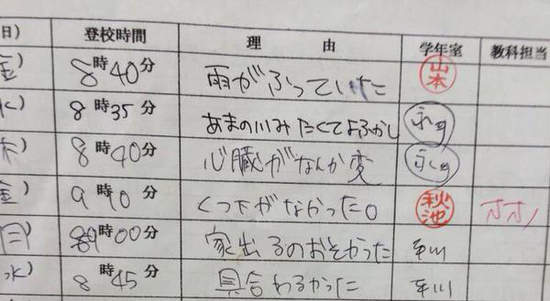 日) 登校時間 理由 学年室 教科担当
金) 8時40分 雨がふっていた 山本
水) 8時35分 あまの川みたくてよふかし
木) 8時40分 心臓がなんか変
金) 9時10分 くつ下がなかった。 秋池
月) 9時00分 家出るのおそかった 平川
水) 8時45分 具合わるかった 平川